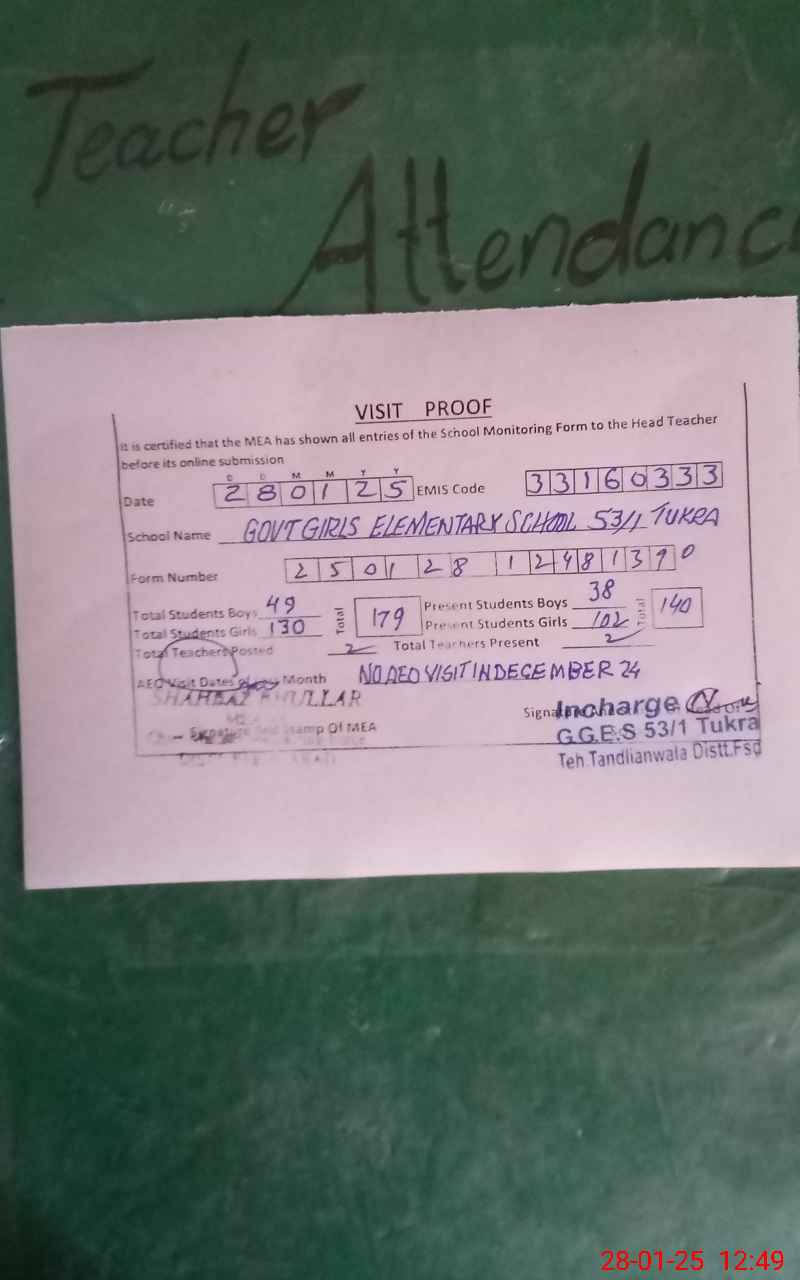 Teacher
Attendanc
VISIT PROOF
It is certified that the MEA has shown all entries of the School Monitoring Form to the Head Teacher
before its online submission
D D M M Y Y
Date 280125 EMIS Code 33160333
School Name GOVT GIRLS ELEMENTARY SCHOOL 53/1 TUKRA
Form Number 25012812481390
Total Students Boys 49 Total 179 Present Students Boys 38 Total 140
Total Students Girls 130 Present Students Girls 102
Total Teachers Posted 2 Total Teachers Present 2
AEO Visit Dates Month NO AEO VISIT IN DECEMBER 24
SHAHBAZ
Signature and Stamp Of MEA
Incharge
G.G.E.S 53/1 Tukra
Teh.Tandlianwala Distt.Fsd
28-01-25 12:49